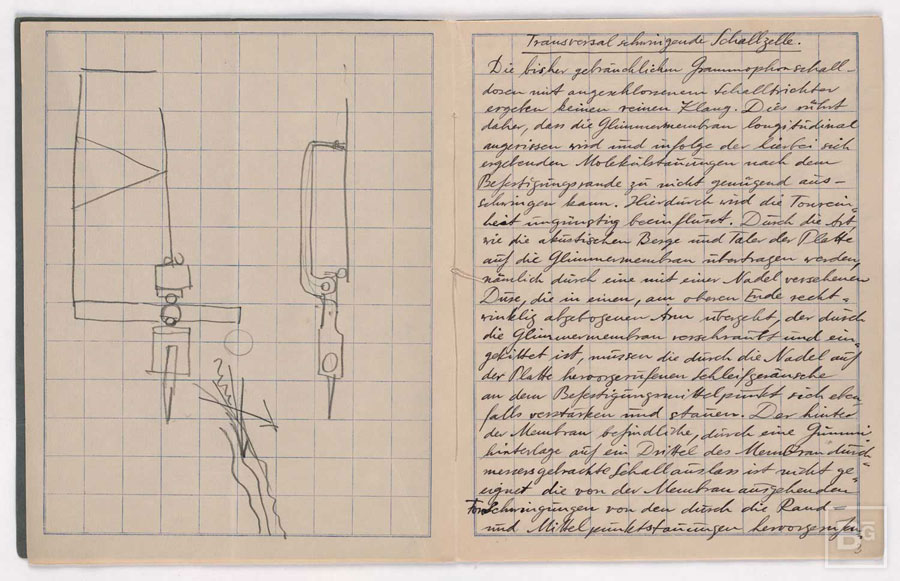 Transversal schwingende Schallzelle.
Die bisher gebräuchlichen Grammophonschall-
dosen mit angeschlossenem Schalltrichter
ergeben keinen reinen Klang. Dies rührt
daher, dass die Glimmermembran longitudinal
angerissen wird und infolge der hierbei sich
ergebenden Molekülstauungen nach dem
Befestigungsrande zu nicht genügend aus-
schwingen kann. Hierdurch wird die Tonrein-
heit ungünstig beeinflusst. Durch die Art,
wie die akustischen Berge und Täler der Platte
auf die Glimmermembran übertragen werden,
nämlich durch eine mit einer Nadel versehenen
Düse, die in einen, am oberen Ende recht-
winklig abgebogenen Arm übergeht, der durch
die Glimmermembran verschraubt und ein-
gekittet ist, müssen die durch die Nadel auf
der Platte hervorgerufenen Schleifgeräusche
an dem Befestigungsmittelpunkt sich eben
falls verstärken und stauen. Der hinter
der Membran befindliche, durch eine Gummi
hinterlage auf ein Drittel des Membrandurch-
messers gebrachte Schallauslass ist nicht ge
eignet die von der Membran ausgehenden
Tonschwingungen von den durch die Rand-
und Mittelpunktstauungen hervorgerufen
3
BG